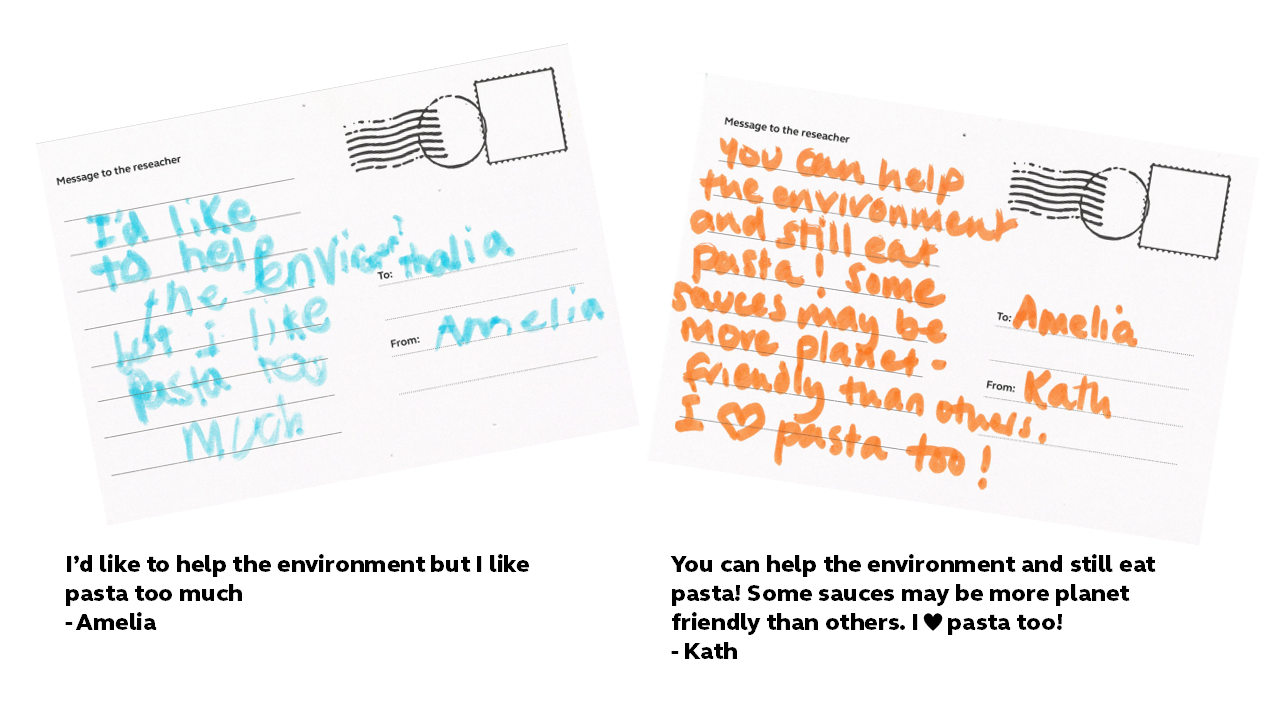 Message to the reseacher
I'd like
to help
the environ?
but i like
pasta too
much
To: Thalia
From: Amelia
Message to the reseacher
you can help
the environment
and still eat
pasta! Some
sauces may be
more planet-
friendly than others.
I ♥ pasta too!
To: Amelia
From: Kath
I'd like to help the environment but I like
pasta too much
- Amelia
You can help the environment and still eat
pasta! Some sauces may be more planet
friendly than others. I ♥ pasta too!
- Kath